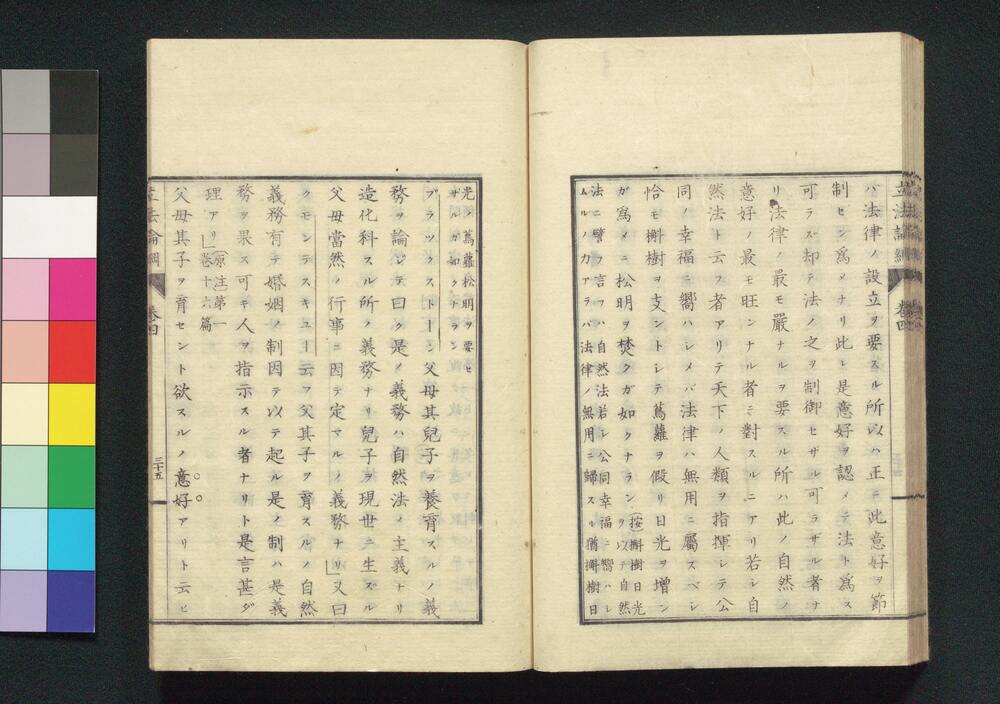 立法論綱 卷四
バ法律ノ設立ヲ要スル所以ハ正ニ此意好ヲ節
制センガ爲メナリ此レ是意好ヲ認メテ法ト爲ス
可ラズ却テ法ノ之ヲ制御セザル可ラザル者ナ
リ法律ノ最モ嚴ナルヲ要スル所ハ此ノ自然ノ
意好ノ最モ旺ンナル者ニ對スルニアリ若シ自
然法ト云フ者アリテ天下ノ人類ヲ指揮シテ公
同ノ幸福ニ嚮ハシメバ法律ハ無用ニ屬スベシ
恰モ槲樹ヲ支ントシテ蔦蘿ヲ假リ日光ヲ增ン
ガ爲メニ松明ヲ焚クガ如クナラン(按)槲樹日光ヲ以テ自然
法ニ譬フ言フハ自然法若シ公同幸福ニ嚮ハシ
ムルノ力アラハ法律ノ無用ニ歸スル猶槲樹日
光ノ蔦蘿松明ヲ要セ
ザルガ如クナラン
ブラックストーン父母其兒子ヲ養育スルノ義
務ヲ論シテ曰ク是ノ義務ハ自然法ノ主義トリ
造化科スル所ノ義務ナリ兒子ヲ現世ニ生ズル
父母當然ノ行事ニ因テ定マルノ義務ナリ」又曰
クモンテスキユー云フ父其子ヲ育スルノ自然
義務有テ婚姻ノ制因テ以テ起ル是ノ制ハ是義
務ヲ果ス可キ人ヲ指示スル者ナリト是言甚ダ
理アリ」(原注第一卷十六篇
父母其子ヲ育セント欲スルノ意好アリト云ヒ
立法論綱 卷四 三十五